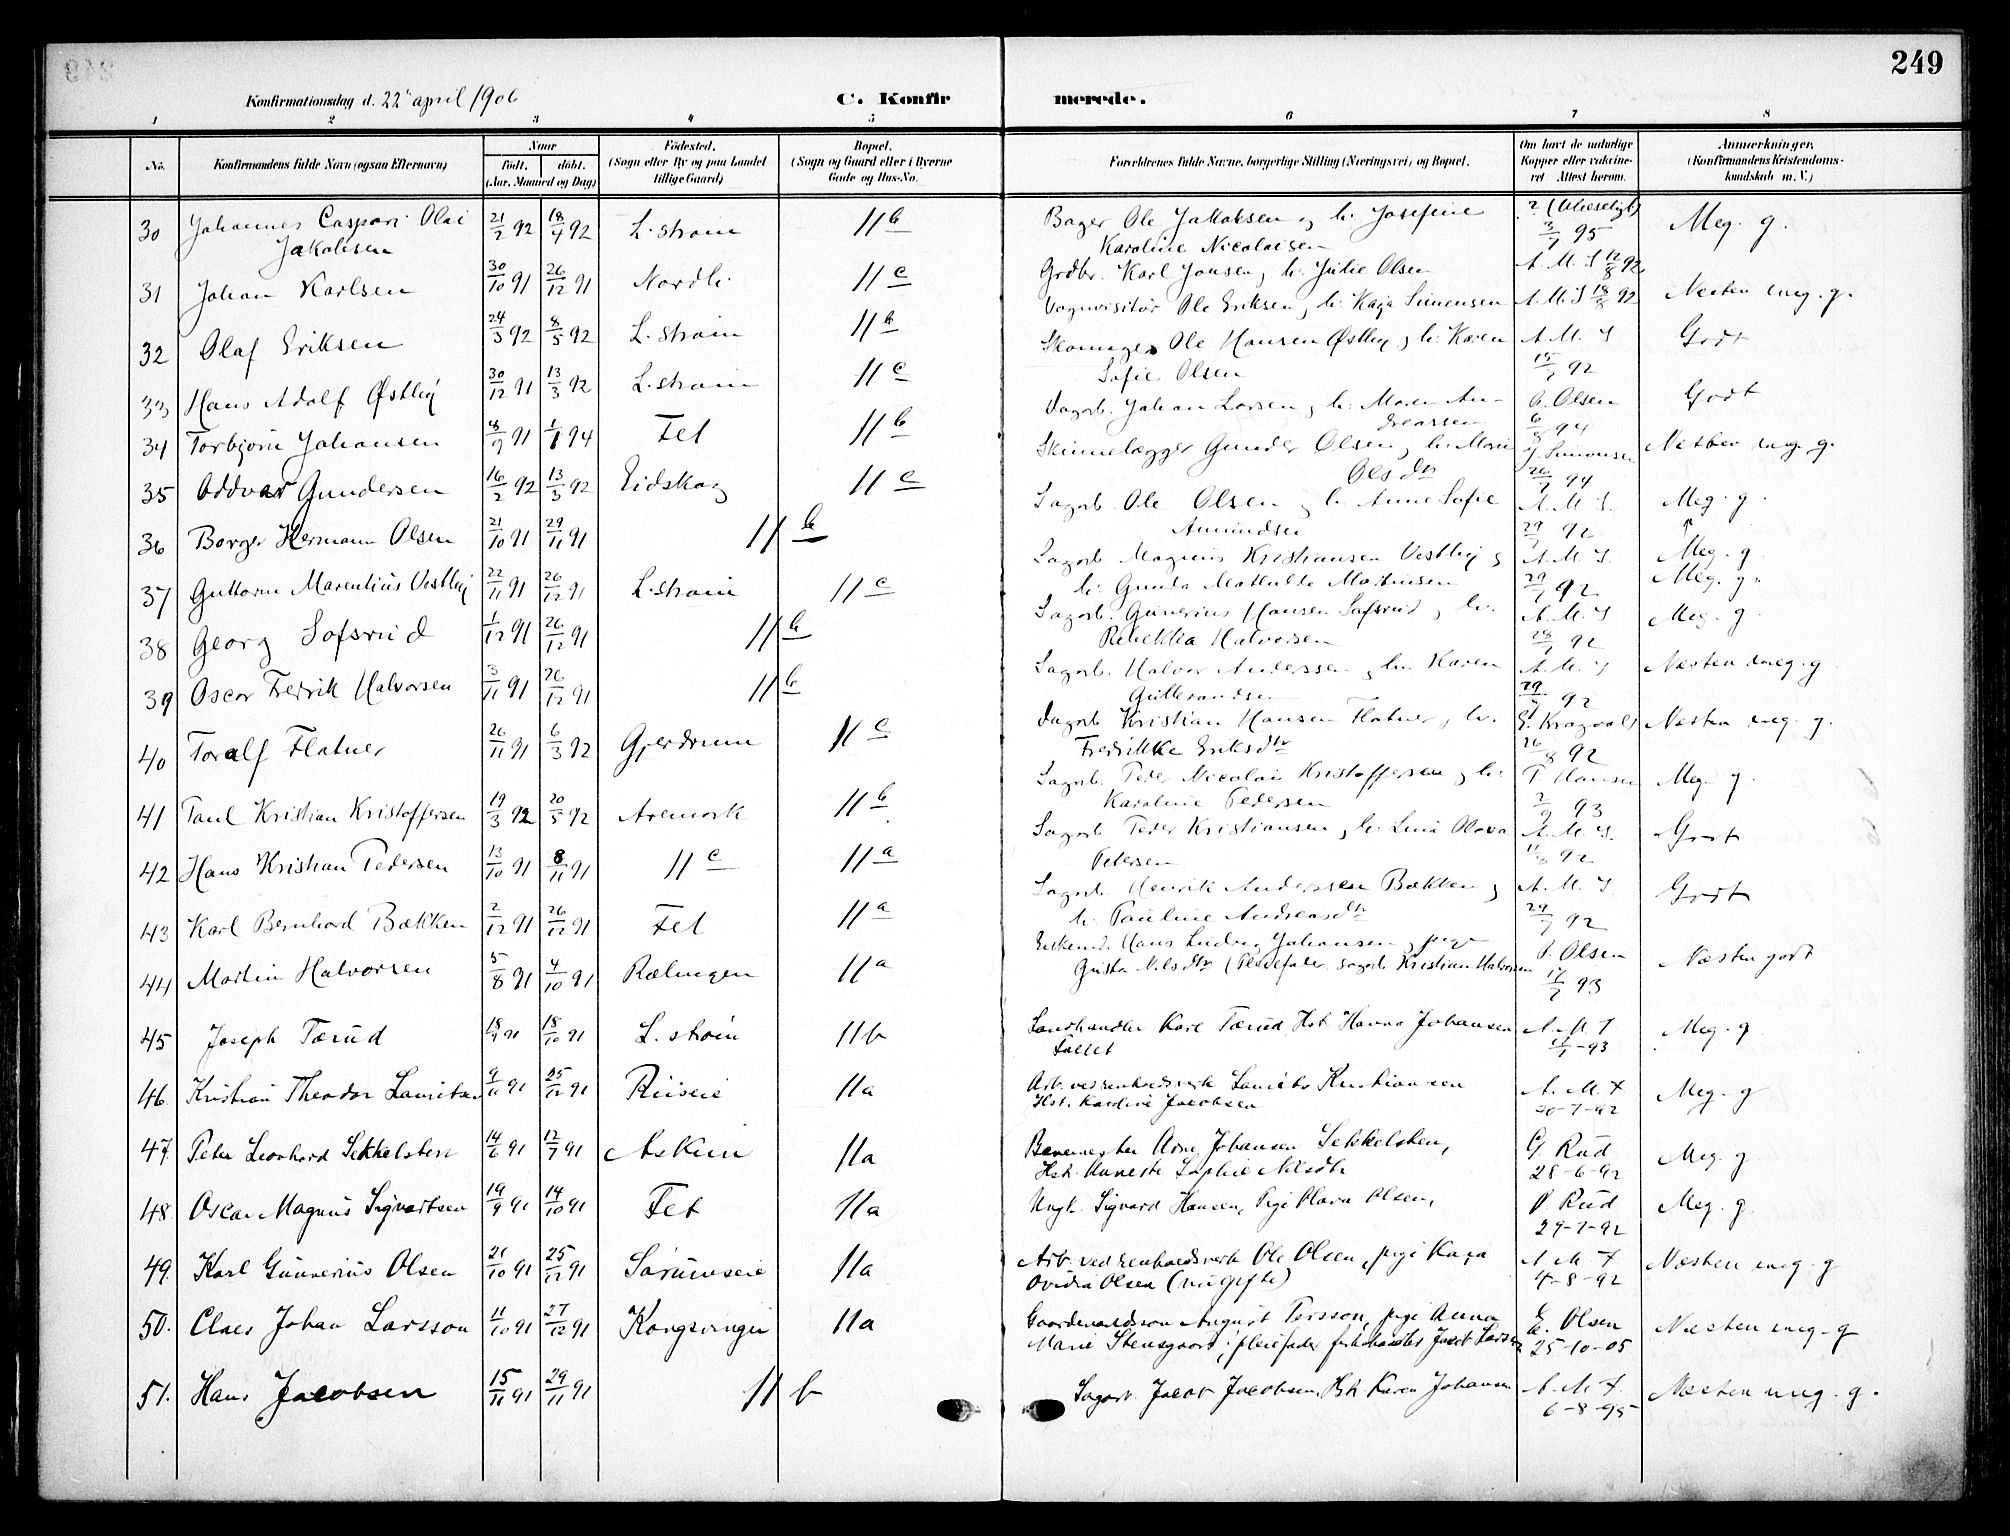 249
Konfirmationsdag d. 22 april 1906
C. Konfirmerede.
1 2 3 4 5 6 7 8
No. Konfirmandens fulde Navn (ogsaa Efternavn) Naar født, døbt. (Aar, Maaned og Dag) Fødested. (Sogn eller By og paa Landet tillige Gaard) Bopæl. (Sogn og Gaard eller i Byerne Gade og Hus-No. Forældrenes fulde Navne, borgerlige Stilling (Næringsvei) og Bopæl. Om havt de naturlige Kopper eller vakcineret Attest herom. Anmærkninger. (Konfirmandens Kristendomskundskab m. V.)
30 Johannes Caspari Olai 21/2 92 18/4 92 L.strøm 11 b Bager Ole Jakobsen og h. Josefine Meg. g.
Jakobsen Karoline Nicolaisen 3/7 95
31 Johan Karlsen 30/10 91 26/12 91 Nordli 11 c Grdbr. Karl Jonsen, h. Julie Olsen A. M. S 12/8 92 Næsten meg. g.
32 Olaf Eriksen 24/3 92 8/5 92 L.strøm 11 b Vognvisitør Ole Eriksen, h. Kaja Simensen A. M. S 18/8 92 Godt
33 Hans Adolf Østby 30/12 91 13/3 92 L.strøm 11 c Skomager Ole Hansen Østby, h. Karen A. M. S Godt
Sofie Olsen 15/7 92
34 Torbjørn Johansen 8/9 91 1/1 94 Fet 11 b Dagarb. Johan Larsen, h. Maren An- O. Olsen Næsten meg. g.
dreassen 6/8 94
35 Oddvar Gundersen 16/2 92 13/3 92 Eidskog 11 c Skinnelægger Gunder Olsen, h. Marie J. Simonsen Meg. g.
Olsdtr 26/7 94
36 Borger Hermann Olsen 21/10 91 29/11 91 11 b Sagarb. Ole Olsen, h. Anne Sofie A. M. S. Meg. g.
Amundsen 29/7 92
37 Guttorm Marentius Vestby 22/11 91 26/12 91 L.strøm 11 c Sagarb. Magnus Kristiansen Vestby og A. M. S. Meg. g.
h. Gunda Mathilde Martinsen 29/7 92
38 Georg Sofsrud 1/12 91 26/12 91 11 b Sagarb. Gunerius Hansen Sofsrud, h. A. M. S Meg. g.
Rebekka Halvorsen 28/7 92
39 Oscar Fredrik Halvorsen 3/11 91 26/12 91 11 b Sagarb. Halvor Anderssen, h. Karen A. M. S Næsten meg. g.
Gulbrandsen 29/7 92
40 Toralf Flatner 26/11 91 6/3 92 Gjerdrum 11 c Dagarb. Kristian Hansen Flatner, h. Næsten meg. g.
Fredrikke Eriksdtr 26/8 92
41 Paul Kristian Kristoffersen 19/3 92 20/5 92 Aremark 11 b Sagarb. Peder Nicolai Kristoffersen, h. P. Hansen Meg. g.
Karoline Pedersen 2/9 93
42 Hans Kristian Pedersen 13/10 91 8/11 91 11 c 11 a Sagarb. Peder Kristiansen, h. Lina Olava A. M. S. Godt
Petersen 11/8 92
43 Karl Bernhard Bækken 2/12 91 26/12 91 Fet 11 a Sagarb. Henrik Anderssen Bækken og A. M. S. Godt
h. Pauline Andreasdtr 29/7 92
44 Martin Halvorsen 5/8 91 4/10 91 Rælingen 11 a Enkemd. Hans Ludvig Johansen, pige O. Olsen Næsten godt
Grista Nilsdtr (Pleiefader sagarb. Kristian Halvorsen 17/7 93
45 Joseph Tærud 18/9 91 18/10 91 L. strøm 11 b Landhandler Karl Tærud, Hst. Hanna Johansen A. M. S Meg. g.
17/7 - 93
46. Kristian Theodor Lauritsen 9/11 91 25/12 91 Riiseie 11 a Arb. ved renholdsverk Laurits Kristiansen A. M. S Meg. g
Hst. Karoline Jacobsen 20-7-92
47. Peter Leonhard Sekkelsten 14/6 91 12/7 91 Askim 11 a Banemester Arne Johansen Sekkelsten, G. Rud Meg. g
Hst. Annette Sophie Nilsdtr 28-6-92
48. Oscar Magnus Sigvartsen 19/9 91 14/10 91 Fet 11 a Ungk. Sigvard Hansen, Pige Olava Olsen, O. Rud Meg. g
29-7-92
49. Karl Gunnerius Olsen 21/10 91 25/12 91 Sørumseie 11 a Arb. ved renholdsverk Ole Olsen, pige Kaja A. M. S Næsten meg. g
Ovidia Olsen (nu gifte) 4-8-92
50. Claes Johan Larsson 11/10 91 27/12 91 Kongsvinger 11 a Gaardmandssøn August Persson, pige Anna E. Olsen Næsten meg. g
Marie Stensgaard; pleiefader fiskehandler Jacob Larsen 25-10-05
51. Hans Jacobsen 15/11 91 29/11 91 11 b Sagarb. Jacob Jacobsen, Hst. Karen Johansen A. M. S. Næsten meg. g.
6-8-95